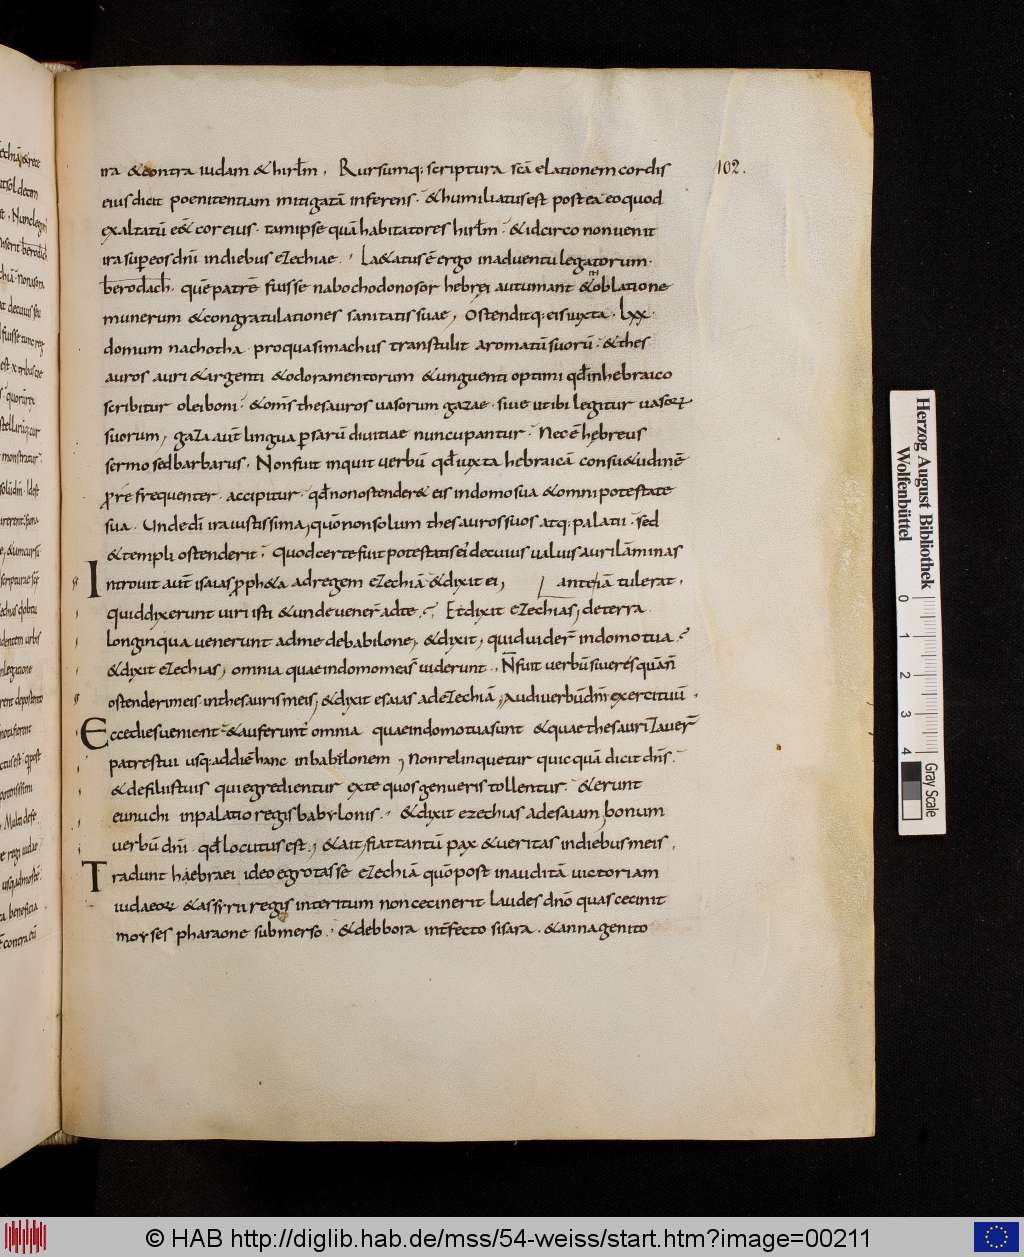 ira &contra iudam & hirłm. Rursumq; scriptura scā elationem cordis
102.
eius dicit poenitentiam mitigatā inferens. & humiliatus est postea eo quod
exaltatū eēt cor eius. tam ipse quā habitatores hirłm. & idcirco non uenit
ira super eos dn̄i in diebus ezechiae. La&atus ē ergo in aduentu legatorum.
berodach. quē patrē fuisse nabochodonosor hebrei autumant & oblatione
munerum & congratulationes sanitatis suae, Ostenditq; eis iuxta. lxx.
domum nachotha. pro qua simachus transtulit aromatū suorū. & thes
auros auri & argenti & odoramentorum & unguenti optimi qđ in hebraico
scribitur olei boni. & omīs thesauros uasorum gazae. siue ut ibi legitur uasoꝝ
suorum, gaza aut̄ lingua ꝑsarū diuitiae nuncupantur. Nec ē hebreus
sermo sed barbarus. Non fuit inquit uerbū qđ iuxta hebraicā consu&udinē
ꝓ re frequenter. accipitur. qđ non ostender& eis in domo sua & omni potestate
sua. Unde dī ira iustissima, quō non solum thesauros suos atq; palatii. sed
& templi ostenderit. quod certe fuit potestatis ei' de cuius ualuis auri lāminas
Introiuit aut̄ isaias ꝓph&a ad regem ezechiā & dixit ei, antea iā tulerat.
quid dixerunt uiri isti & unde uener̄ ad te? Et dixit ezechias, de terra
longinqua uenerunt ad me de babilone, & dixit, quid uider̄ in domo tua?
& dixit ezechias, omnia quae in domo mea s̄ uiderunt. N̄ fuit uerbū siue res quā n̄
ostenderim eis in thesauris meis, & dixit esaias ad ezechiā, Audi uerbū dn̄i exercituū.
Ecce dies uenient & auferunt' omnia quae in domo tua sunt & quae thesaurizauer̄
patres tui usq; ad diē hanc in babilonem, Non relinquetur quicquā dicit dn̄s.
& de filiis tuis qui egredientur ex te quos genueris tollentur. & erunt
eunuchi in palatio regis babylonis. & dixit ezechias ad esaiam, bonum
uerbū dn̄i. qđ locutus est, & ait, fiat tantū pax & ueritas in diebus meis.
Tradunt haebraei ideo egrotasse ezechiā quō post inauditā uictoriam
iudaeoꝝ & assyrii regis interitum non cecinerit laudes dn̄o quas cecinit
moyses pharaone submerso. & debbora int̄fecto sisara. & anna genito
Herzog August Bibliothek
Wolfenbüttel
0 1 2 3 4
Gray Scale
© HAB http://diglib.hab.de/mss/54-weiss/start.htm?image=00211